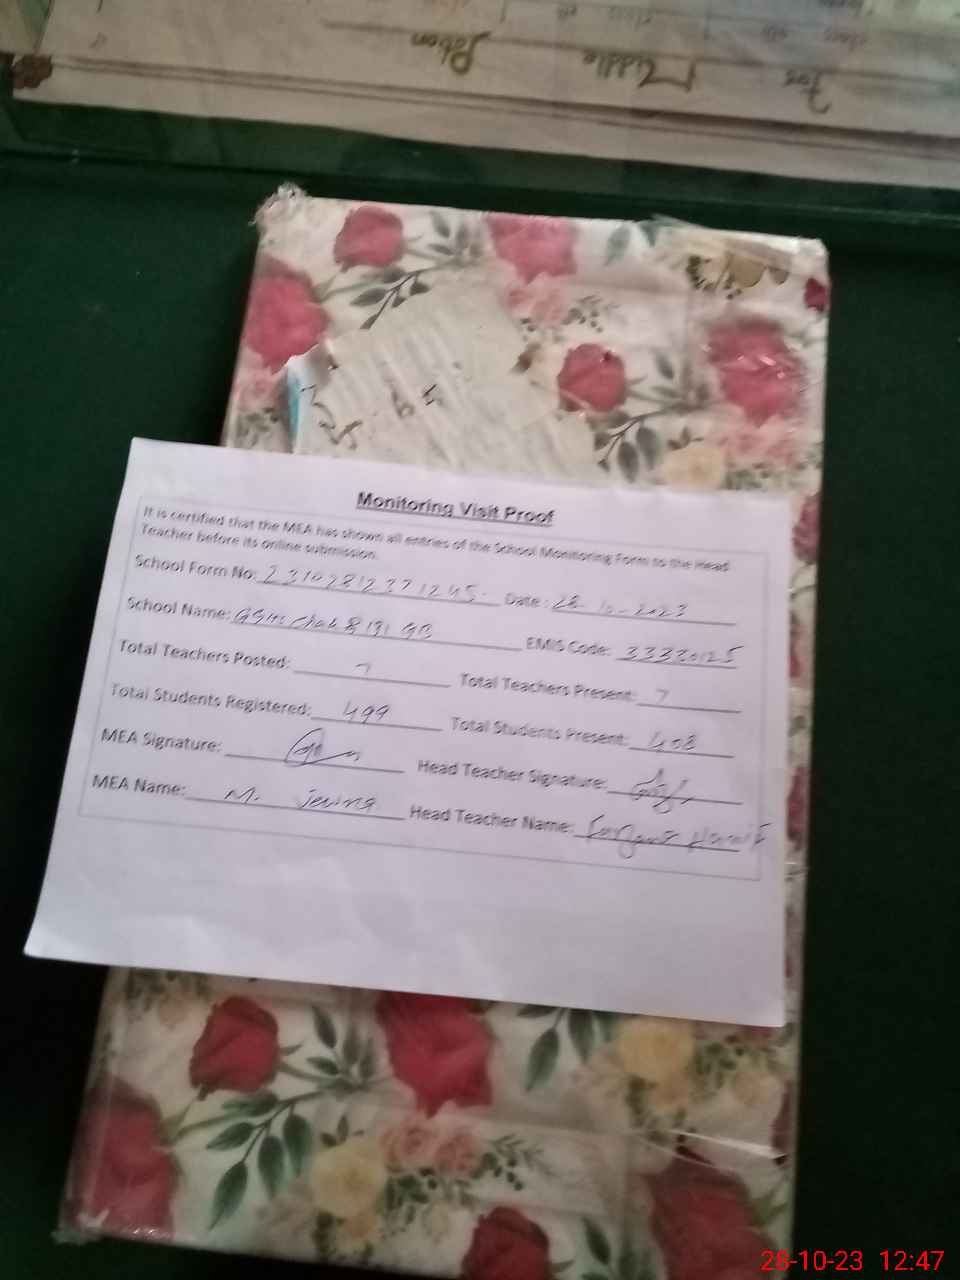 For Middle Portion
Monitoring Visit Proof
It is certified that the MEA has shown all entries of the School Monitoring Form to the Head
Teacher before its online submission.
School Form No: 23102812371245. Date: 28-10-2023
School Name: GGHS Chak 8 191 GB EMIS Code: 33330125
Total Teachers Posted: 7 Total Teachers Present: 7
Total Students Registered: 499 Total Students Present: 408
MEA Signature: Head Teacher Signature:
MEA Name: M. Head Teacher Name:
28-10-23 12:47